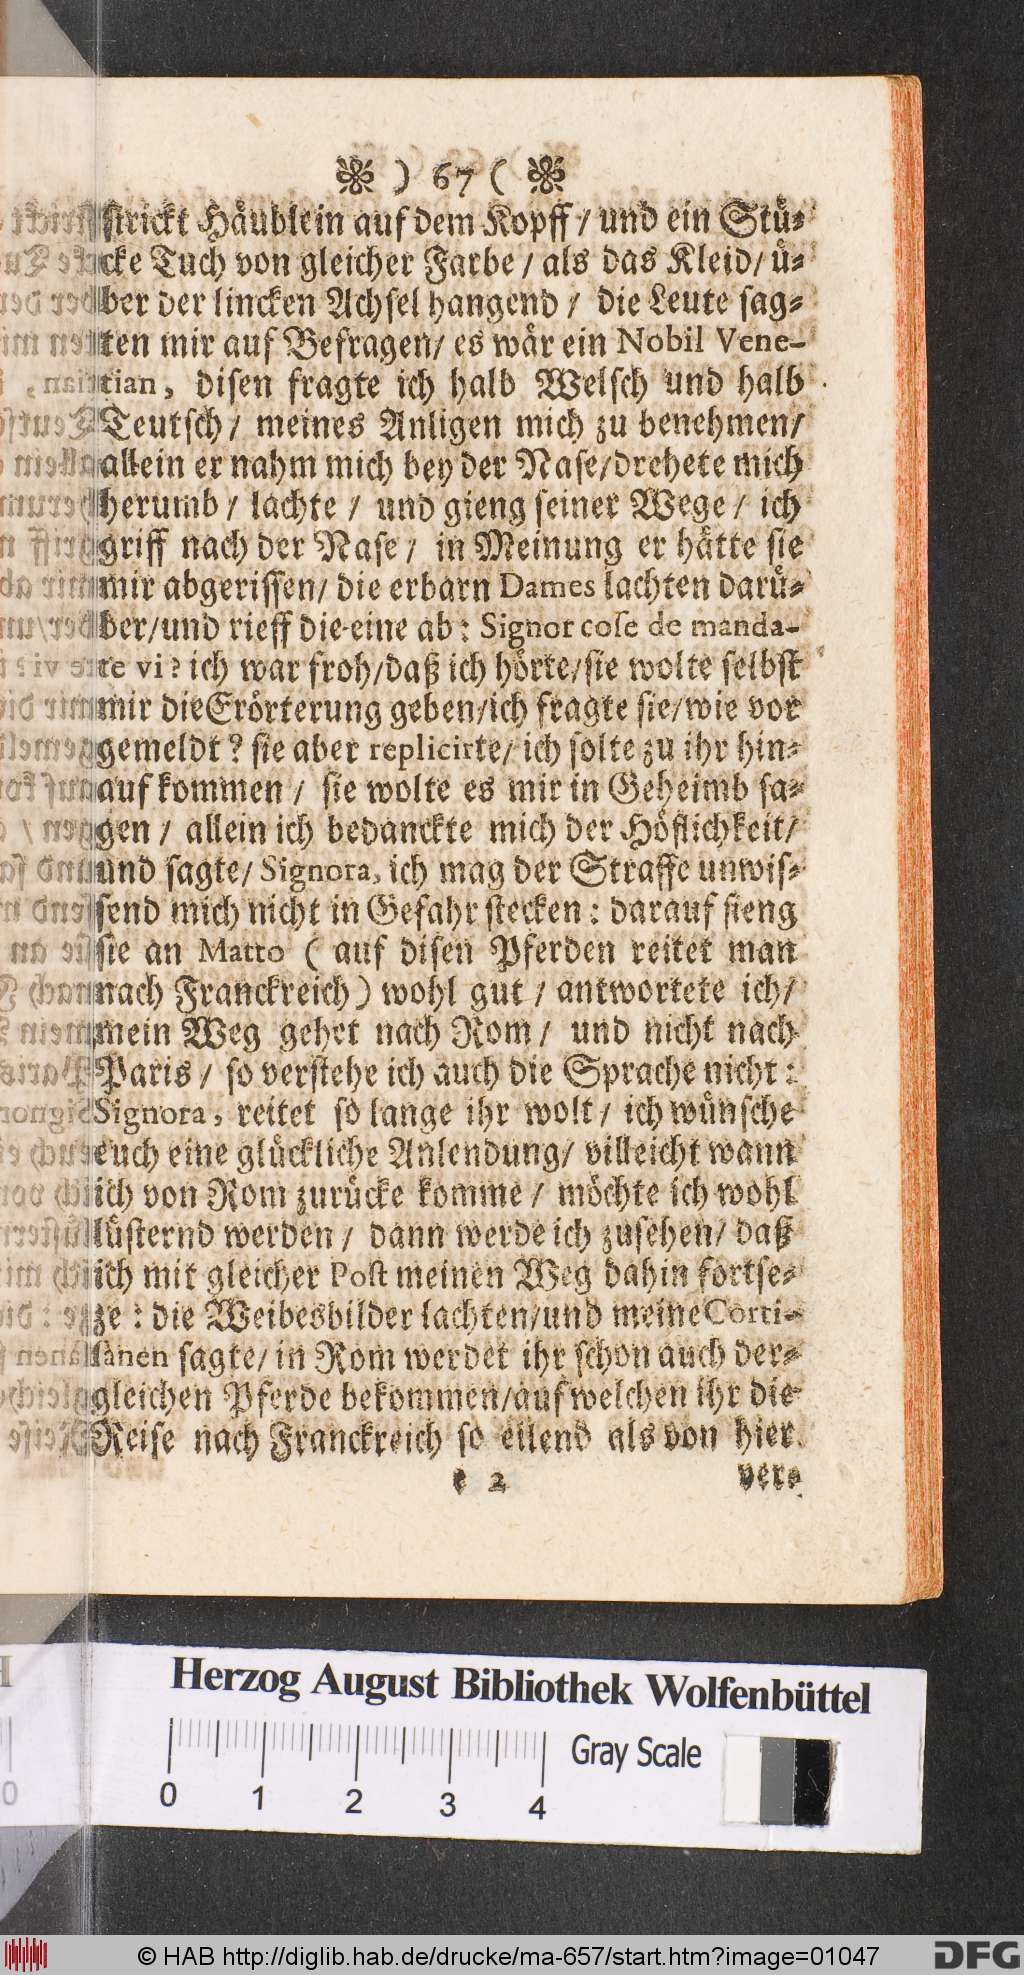 ) 67 (
strickt Häublein auf dem Kopff / und ein Stü-
cke Tuch von gleicher Farbe / als das Kleid / ü-
ber der lincken Achsel hangend / die Leute sag-
ten mir auf Befragen / es wär ein Nobil Vene-
tian, disen fragte ich halb Welsch und halb
Teutsch / meines Anligen mich zu benehmen /
allein er nahm mich bey der Nase / drehete mich
herumb / lachte / und gieng seiner Wege / ich
griff nach der Nase / in Meinung er hätte sie
mir abgerissen / die erbarn Dames lachten darü-
ber / und rieff die-eine ab : Signor cose de manda-
te vi ? ich war froh / daß ich hörte / sie wolte selbst
mir die Erörterung geben / ich fragte sie / wie vor
gemeldt ? sie aber replicirte / ich solte zu ihr hin-
auf kommen / sie wolte es mir in Geheimb sa-
gen / allein ich bedanckte mich der Höflichkeit /
und sagte / Signora, ich mag der Straffe unwis-
send mich nicht in Gefahr stecken : darauf fieng
sie an Matto ( auf disen Pferden reitet man
nach Franckreich ) wohl gut / antwortete ich /
mein Weg gehet nach Rom / und nicht nach
Paris / so verstehe ich auch die Sprache nicht :
Signora, reitet so lange ihr wolt / ich wünsche
euch eine glückliche Anlendung / villeicht wann
ich von Rom zurücke komme / möchte ich wohl
lüsternd werden / dann werde ich zusehen / daß
ich mit gleicher Post meinen Weg dahin fortse-
ze : die Weibesbilder lachten / und meine Corti-
sanen sagte / in Rom werdet ihr schon auch der-
gleichen Pferde bekommen / auf welchen ihr die
Reise nach Franckreich so eilend als von hier
e 2
ver-
Herzog August Bibliothek Wolfenbüttel
0 1 2 3 4
Gray Scale
© HAB http://diglib.hab.de/drucke/ma-657/start.htm?image=01047
DFG